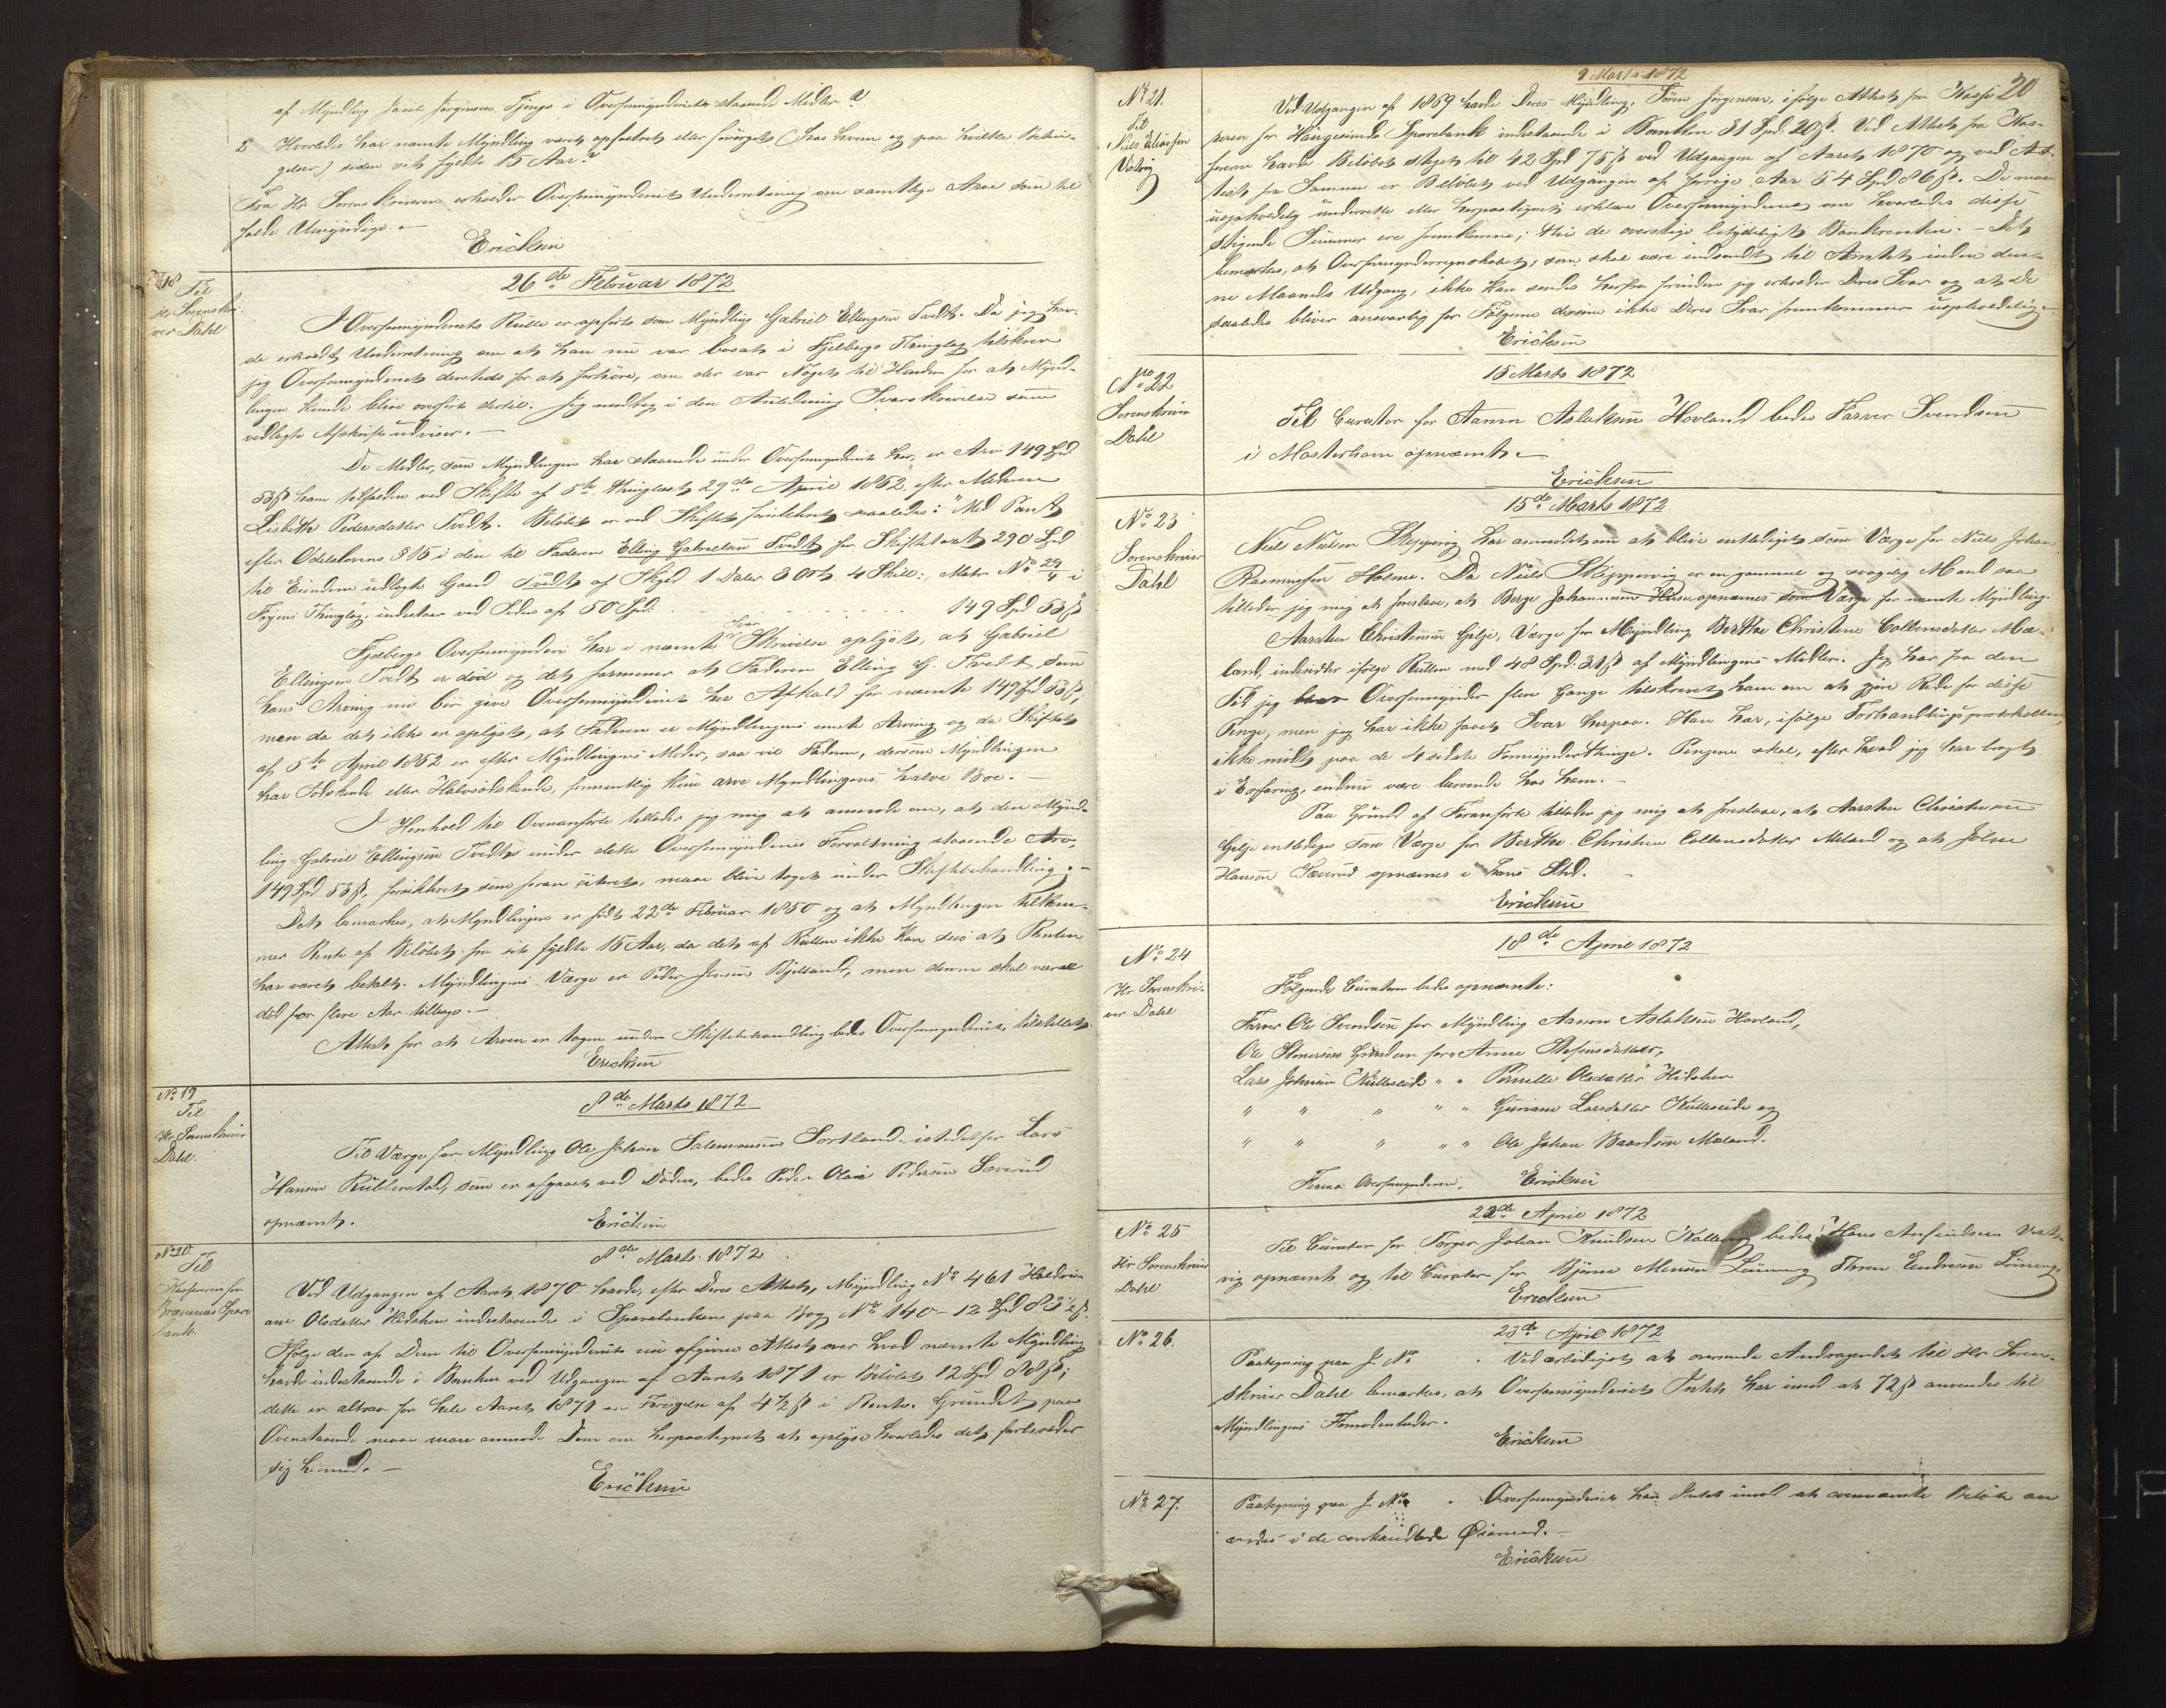 af Myndling Jacob Jørgensens Tjengs i Overformynderiet staaende Midler?
2 Hvorledes har nævnte Myndling været opfostret eller forsørget (hos hvem og paa hvilke Betin-
gelser) siden sit fyldte 15 Aar?
Fra Hr Sorenskriveren erholder Overformynderiet Underretning om samtlige Arve som til
falde Umyndige. -
Ericksen
No 18
Til
Hr Sorenskri-
ver Dahl
26de Februar 1872
I Overformynderiets Rulle er opført som Myndling Gabriel Ellingsen Tvedt. Da jeg hav-
de erholdt Underretning om at han nu var bosat i Fjelbergs Thinglag tilskrev
jeg Overformynderiet dersteds for at forhøre, om der var Noget til Hinder for at Mynd-
lingen kunde blive overført dertil. Jeg modtog i den Anledning Svarskrivelse som
vedlagte Afskrift udviser. -
De Midler, som Myndlingen har staaende under Overformynderiet her, er Arv 149 Spd
53 ß ham tilfalden ved Skifte af 5te, thinglæst 29de April 1852, efter Moderen
Lisbeth Pedersdatter Tvedt. Beløbet er ved Skiftet forsikkret saaledes: "Med Pant
efter Odelslovens § 15 i den til Faderen Elling Gabrielsen Tvedt for Skiftetaxt 290 Spd
til Eiendom udlagte Gaard Tvedt af Skyld 1 Daler 3 Ort 4 Skill:, Matr No 29/4 i
Føyens Thinglag, indestaar ved Siden af 50 Spd: . . . . . . . 149 Spd 53 ß"
Fjelbergs Overformynderi har i nævnte Svar Skrivelse oplyst, at Gabriel
Ellingsen Tvedt er død og det formener at Faderen Elling G. Tvedt som
hans Arving nu bør give Overformynderiet her Afkald for nævnte 149 Spd 53 ß;
men da det ikke er oplyst, at Faderen er Myndlingens eneste Arving og da Skiftet
af 5te April 1852 er efter Myndlingens Moder, saa vil Faderen, dersom Myndlingen
har Sødskende eller Halvsødskende, formentlig kun arve Myndlingens halve Boe. -
I Henhold til Ovenanførte tillader jeg mig at anmode om, at den Mynd-
ling Gabriel Ellingsen Tvedt under dette Overformynderies Forvaltning staaende Arv,
149 Spd 53 ß, forsikkret som foran citeret, maa blive taget under Skiftebehandling. -
Det bemærkes, at Myndlingen er født 22de Februar 1850 og at Myndlingen tilkom-
mer Rente af Beløbet fra sit fyldte 15 Aar, da det af Rullen ikke kan sees at Renten
har været betalt. Myndlingens Værge er Peder Jensen Bjelland, men denne skal være
død for flere Aar tilbage. -
Attest for at Arven er tagen under Skiftebehandling bedes Overformynderiet tilstillet.
Ericksen
No 19
Til
Hr Sorenskriver
Dahl.
8de Marts 1872
Til Værge for Myndling Ole Johan Salomonsen Sortland istedetfor Lars
Hansen Rubbestad, som er afgaaet ved Døden, bedes Peder Olai Pedersen Sæverud
opnævnt.
Ericksen
No 20.
Til
Kassereren for
Bremnæs Spare
bank.
8de Marts 1872
Ved Udgangen af Aaret 1870 havde, efter Deres Attest, Myndling No 461 Haldri-
ane Olsdatter Hidshen indestaaende i Sparebanken paa Bog No 140 - 12 Spd 83½ ß.
Ifølge den af Dem til Overformynderiet nu afgivne Attest over hvad nævnte Myndling
havde indestaaende i Banken ved Udgangen af Aaret 1871 er Beløbet 12 Spd 88 ß;
dette er altsaa for hele Aaret 1871 en Forøgelse af 4½ ß i Rente. Grundet paa
Ovenstaaende maa man anmode Dem om herpaategnet at oplyse hvorledes det forholder
sig hermed. -
Ericksen
20
No 21.
Til
Niels Eliassen
Vestvig
9 Marts 1872
Ved Udgangen af 1869 havde Deres Myndling, Søren Jørgensen, ifølge Attest fra Kasse-
reren for Haugesunds Sparebank indestaaende i Banken 31 Spd. 20 ß. Ved Attest fra Kas-
sereren havde Beløbet steget til 42 Spd 75 ß ved Udgangen af Aaret 1870 og ved At-
test fra Samme er Beløbet ved Udgangen af forrige Aar 54 Spd 86 ß. De maa
uopholdelig underrette eller herpaategnet erklære Overformynderiet om hvorledes disse
stigende Summer ere fremkomne; thi de overstige betydeligt Bankrenten. - Det
bemærkes, at Overformynderregnskabet, som skal være indsendt til Amtet inden den-
ne Maaneds Udgang, ikke kan sendes herfra førinden jeg erholder Deres Svar og at De
saaledes bliver ansvarlig for Følgerne dersom ikke Deres Svar fremkommer uopholdelig. -
Ericksen
No 22
Sorenskriver
Dahl
15 Marts 1872
Til Curator for Aamon Aslaksen Hovland bedes Farver Svendsen
i Mosterhavn opnævnt. -
Ericksen
No 23
Sorenskriver
Dahl
15de Marts 1872
Niels Nielsen Skippervig har anmodet om at blive entlediget som Værge for Niels Johan
Rasmussen Holme. Da Niels Skippervig er en gammel og svagelig Mand saa
tillader jeg mig at foreslaae, at Berge Johannesen Huse opnævnes som Værge for nævnte Myndling.
Aarsten Christensen Gilje, Værge for Myndling Berthe Christine Colbensdatter Mæ-
land, indesidder ifølge Rullen med 48 Spd. 31 ß af Myndlingens Midler. Jeg har fra den
Tid jeg blev Overformynder flere Gange tilskrevet ham om at gjøre Rede for disse
Penge, men jeg har ikke faaet Svar herpaa. Han har, ifølge Forhandlingsprotokollen,
ikke mødt paa de 4 sidste Formynderthinge. Pengene skal, efter hvad jeg har bragt
i Erfaring, endnu være beroende hos ham. -
Paa Grund af Foranførte tillader jeg mig at foreslaae, at Aarsten Christensen
Gilje entlediges som Værge for Berthe Christine Colbensdatter Meland og at Johan
Hansen Sæverud opnævnes i hans Sted. -
Ericksen
No 24
Hr Sorenskri-
ver Dahl
18de April 1872
Følgende Curatorer bedes opnævnte:
Farver Ole Svendsen for Myndling Aamon Aslaksen Hovland,
Ole Stenersen for " Anne Stefensdatter,
Lars Johnsen Kulleseid " " Pernille Olsdatter Hidshen
" " " " " Guriane Larsdatter Kulleseide og
" " " " " Ole Johan Baardsen Meland.
Finaas Overformynderi. Ericksen
No 25
Hr Sorenskriver
Dahl
22de April 1872
Til Curator for Torger Johan Knudsen bedes Hans Ansfindsen Vest-
vig opnævnt og til Curator for Bjørne Monsen Løining Thore Endresen Løining.
Ericksen
No 26.
23de April 1872
Paategning paa J. No . Ved ærbødigst at oversende Andragendet til Hr Soren-
skriver Dahl bemærkes, at Overformynderiet Intet har imod at 72 ß anvendes til
Myndlingens Fornødenheder.
Ericksen
No 27.
Paategning paa J. No . Overformynderiet har Intet imod at ovennævnte Beløb an
vendes i de Øiemed. -
Ericksen